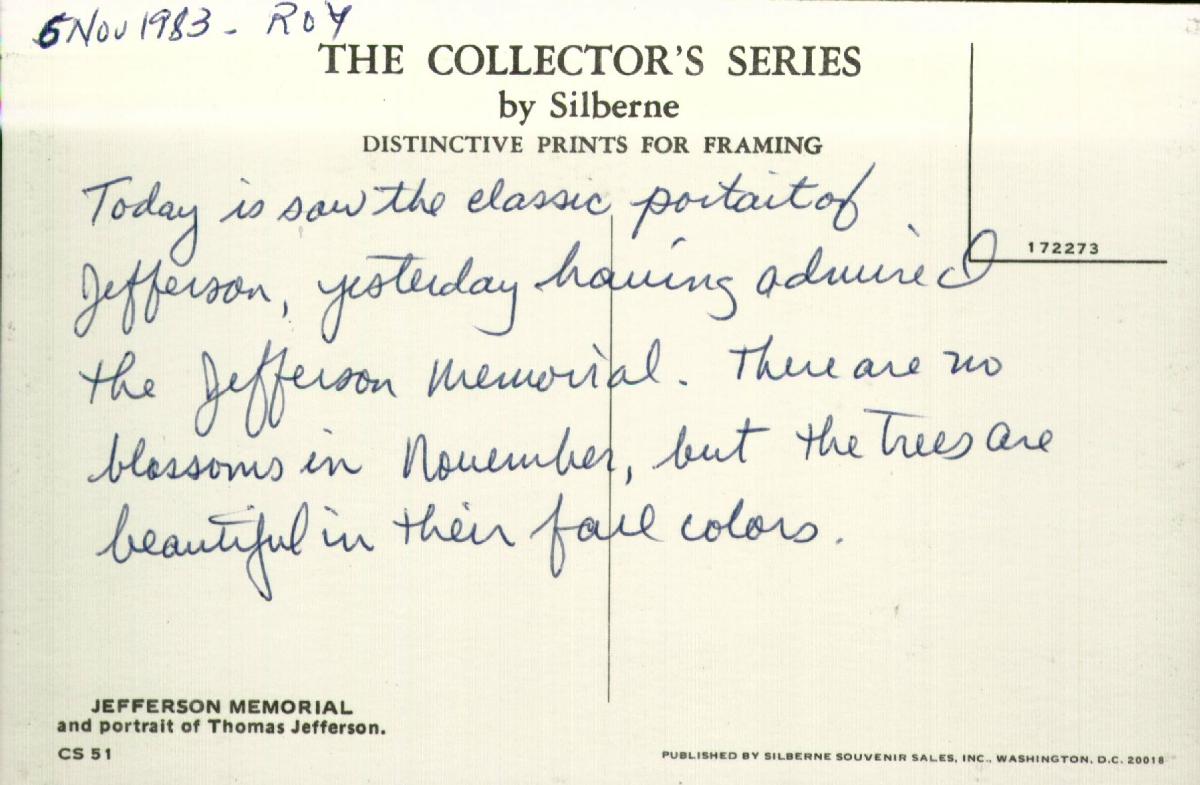 5 Nov 1983 - ROY
THE COLLECTOR'S SERIES
by Silberne
DISTINCTIVE PRINTS FOR FRAMING
Today is saw the classic portait of
Jefferson, yesterday having admired
172273
the Jefferson Memorial. There are no
blossoms in November, but the trees are
beautiful in their fall colors.
JEFFERSON MEMORIAL
and portrait of Thomas Jefferson.
CS 51
PUBLISHED BY SILBERNE SOUVENIR SALES, INC., WASHINGTON, D.C. 20018